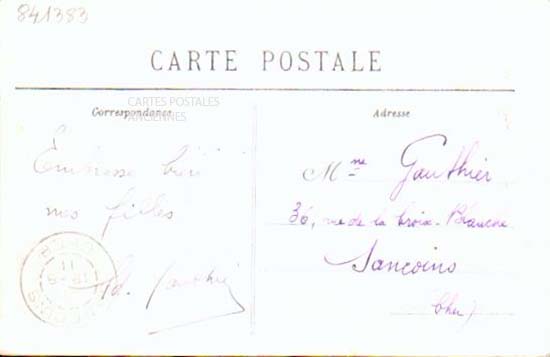 841383
CARTE POSTALE
Correspondance
CARTES POSTALES
ANCIENNES
Embrasse bien
mes filles
Gauthier
Adresse
Mme Gauthier
36, rue de la Croix-Blanche
Sancoins
Cher